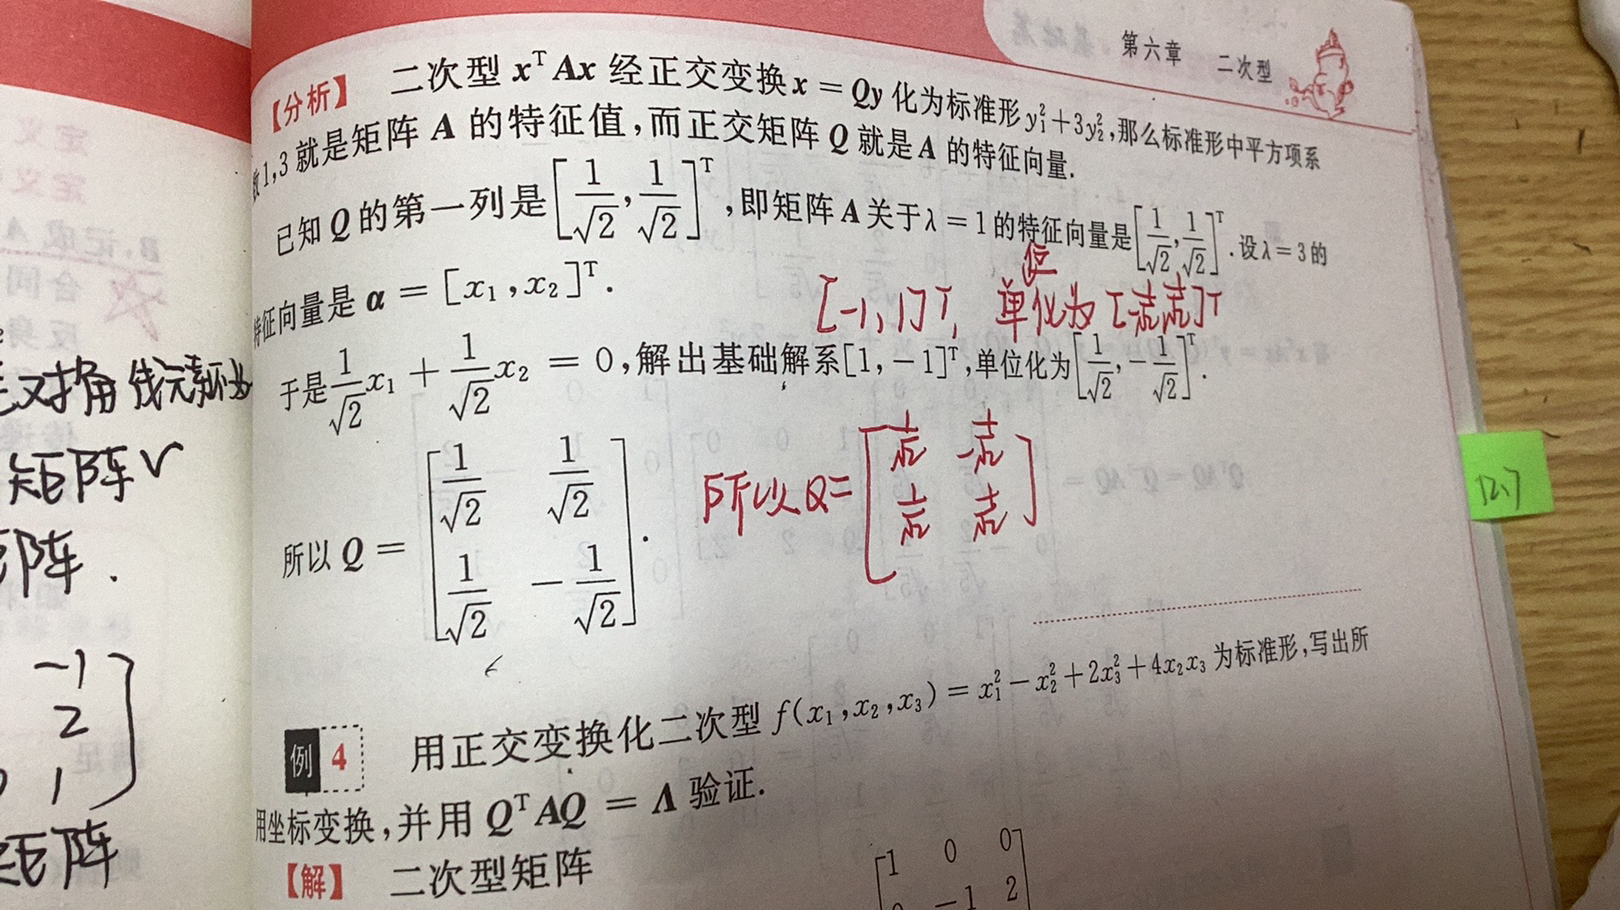 第六章 二次型
【分析】 二次型 xᵀAx 经正交变换 x = Qy 化为标准形 y₁²+3y₂²,那么标准形中平方项系
数1,3 就是矩阵 A 的特征值,而正交矩阵 Q 就是 A 的特征向量.
已知 Q 的第一列是 [1/√2, 1/√2]ᵀ,即矩阵 A 关于 λ = 1 的特征向量是 [1/√2, 1/√2]ᵀ. 设 λ = 3 的
特征向量是 α = [x₁, x₂]ᵀ.
位
[-1,1]T, 单化为 [-1/√2 1/√2]T
于是 1/√2 x₁ + 1/√2 x₂ = 0,解出基础解系[1,-1]ᵀ,单位化为 [1/√2, -1/√2]ᵀ.
所以 Q = [1/√2 1/√2
1/√2 -1/√2].
所以Q= [1/√2 -1/√2
1/√2 1/√2]
例 4 用正交变换化二次型 f(x₁,x₂,x₃) = x₁² - x₂² + 2x₃² + 4x₂x₃ 为标准形,写出所
用坐标变换,并用 QᵀAQ = Λ 验证.
【解】 二次型矩阵
[1 0 0
-1 2
12.7
定义
定义
B,记成A
合同
反身
对角线元素
矩阵√
阵.
-1
2
1
矩阵